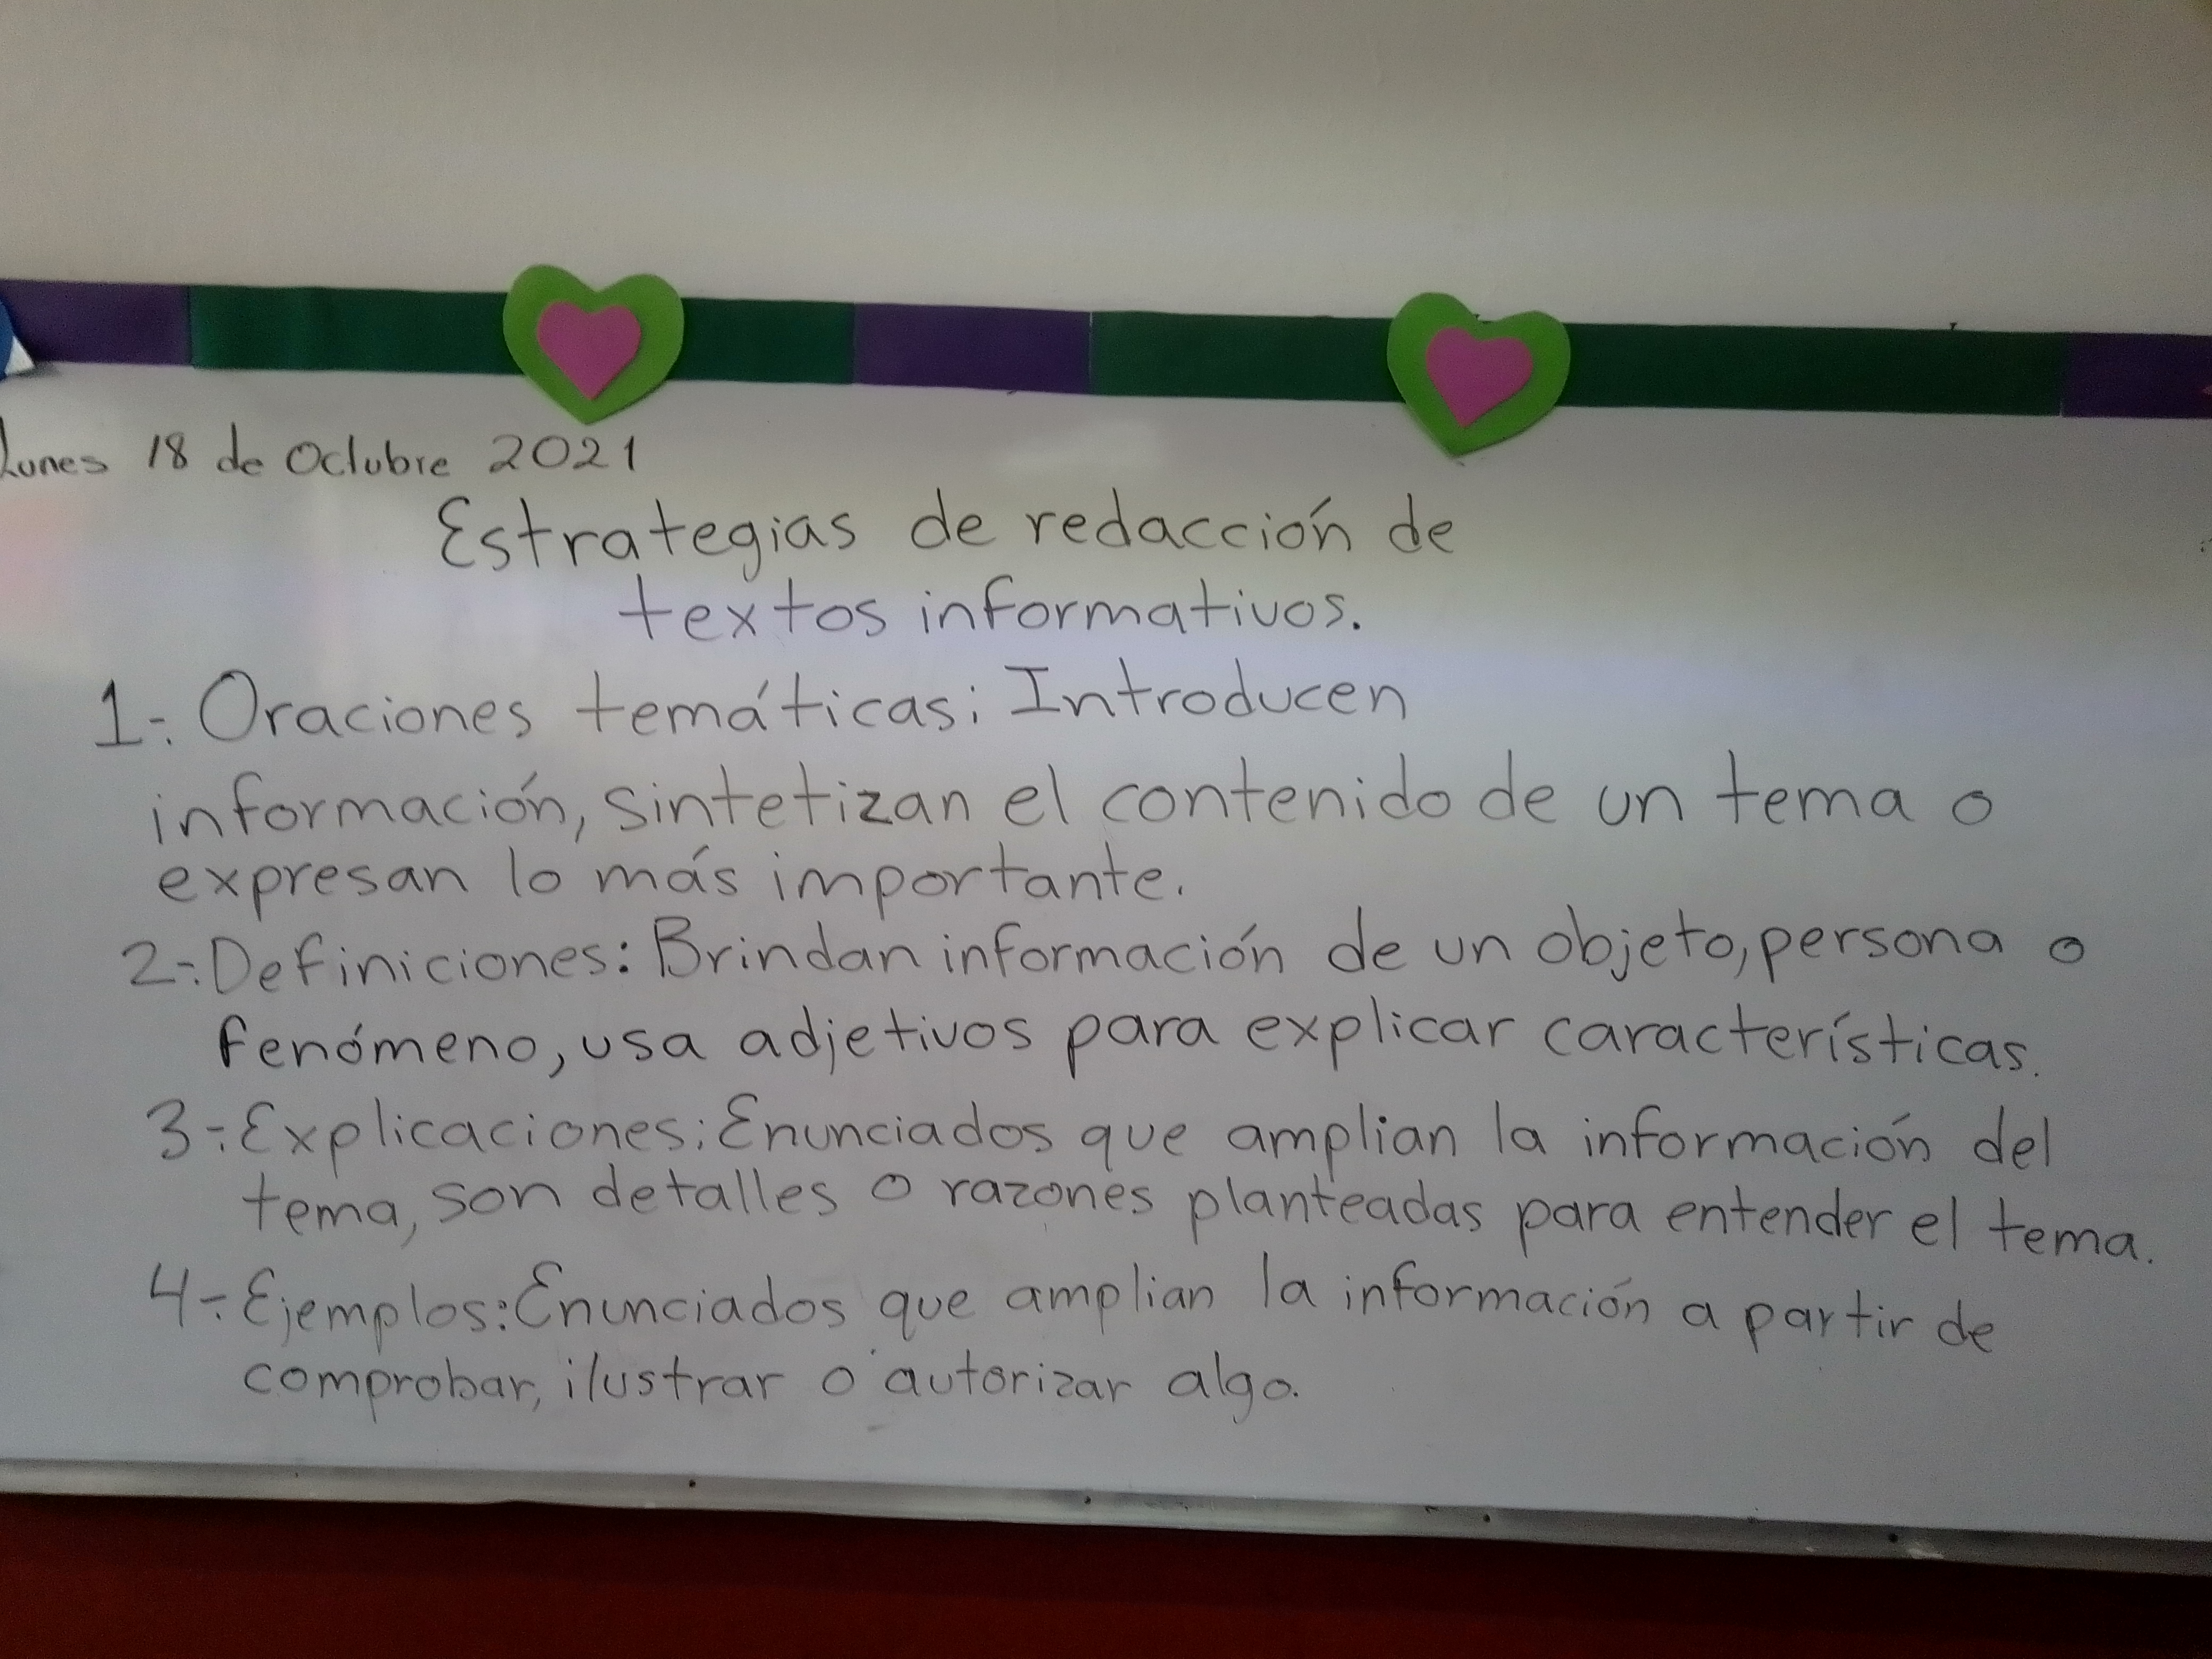 Lunes 18 de Octubre 2021
Estrategias de redacción de
textos informativos.
1.- Oraciones temáticas: Introducen
información, sintetizan el contenido de un tema o
expresan lo más importante.
2.- Definiciones: Brindan información de un objeto, persona o
fenómeno, usa adjetivos para explicar características.
3.- Explicaciones: Enunciados que amplian la información del
tema, son detalles o razones planteadas para entender el tema.
4.- Ejemplos: Enunciados que amplian la información a partir de
comprobar, ilustrar o autorizar algo.